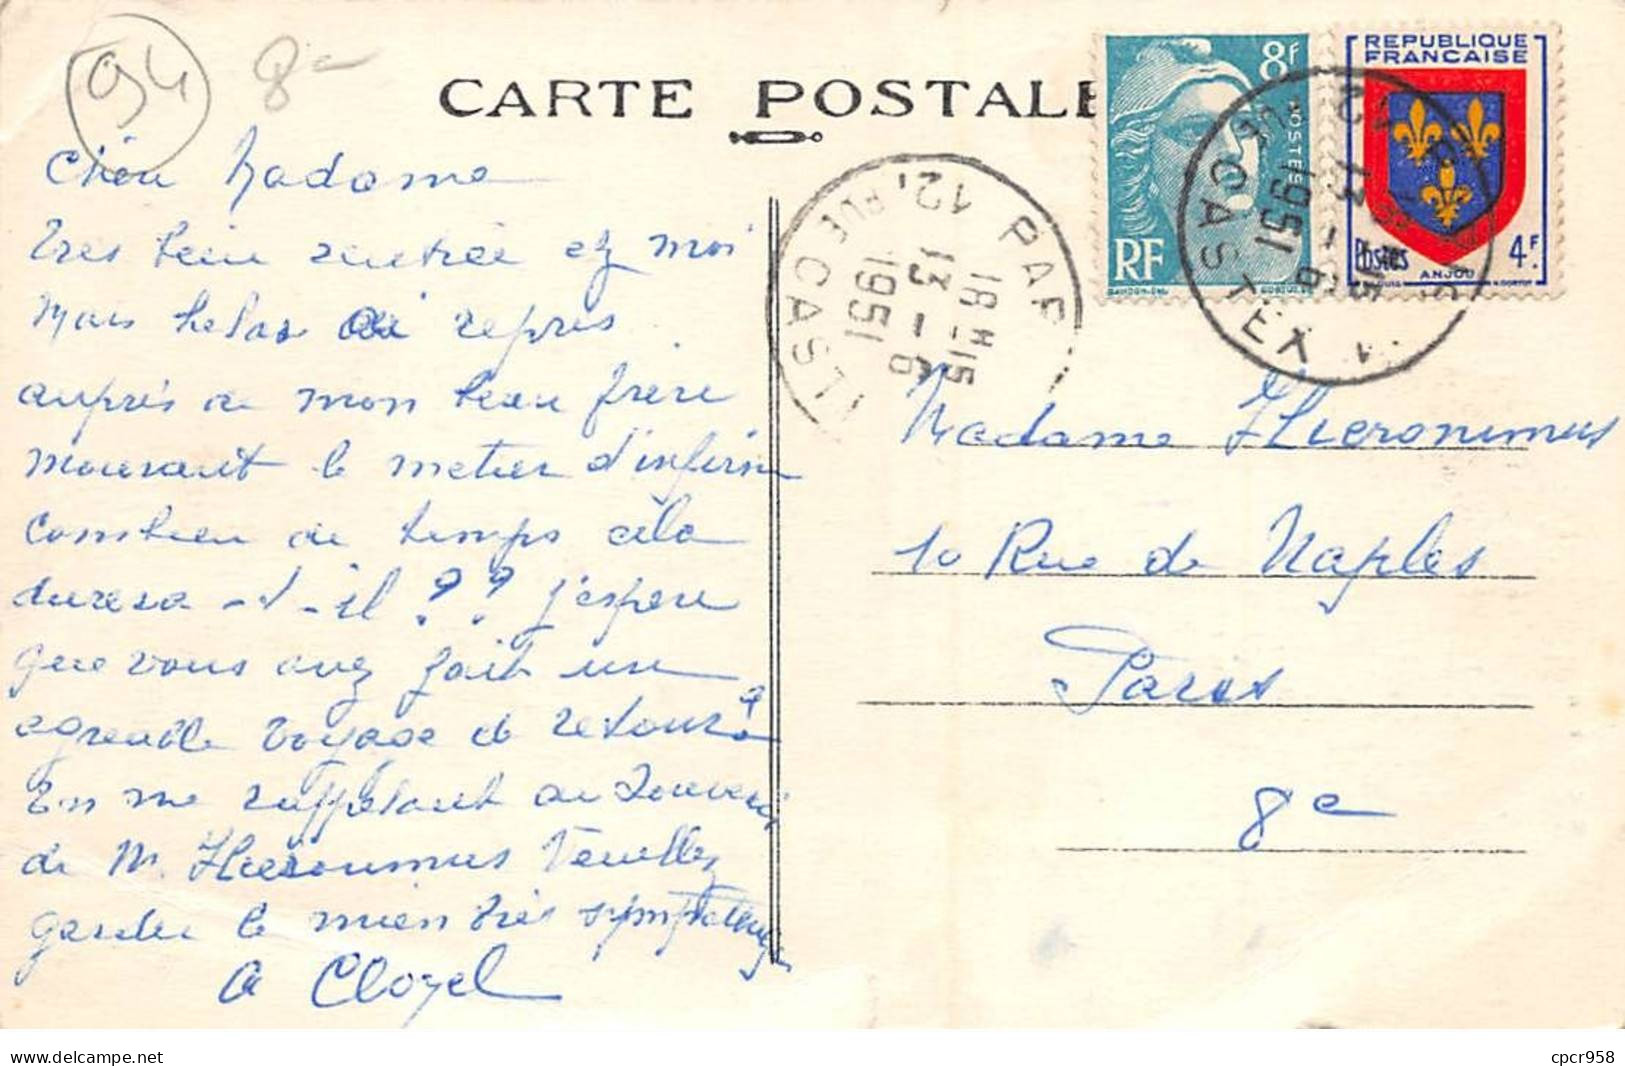 94
8-
CARTE POSTALE
8F
POSTES
RF
REPUBLIQUE
FRANCAISE
Postes
4F.
ANJOU
PAR
12 RUE CASTEX
18H15
13 - 6
1951
Chère Madame
Très bien rentrée chez moi
Mais helas ai repris
auprès de mon beau frère
mourant le metier d'infirm
Combien de temps cela
durera-t-il ?? j'espere
que vous avez fait un
agreable voyage de retour ?
En me rappelant au souvenir
de M. Hieronimus Veuillez
garder le mien très sympathique
A Clozel
Madame Hieronimus
10 Rue de Naples
Paris
8e
cpcr958